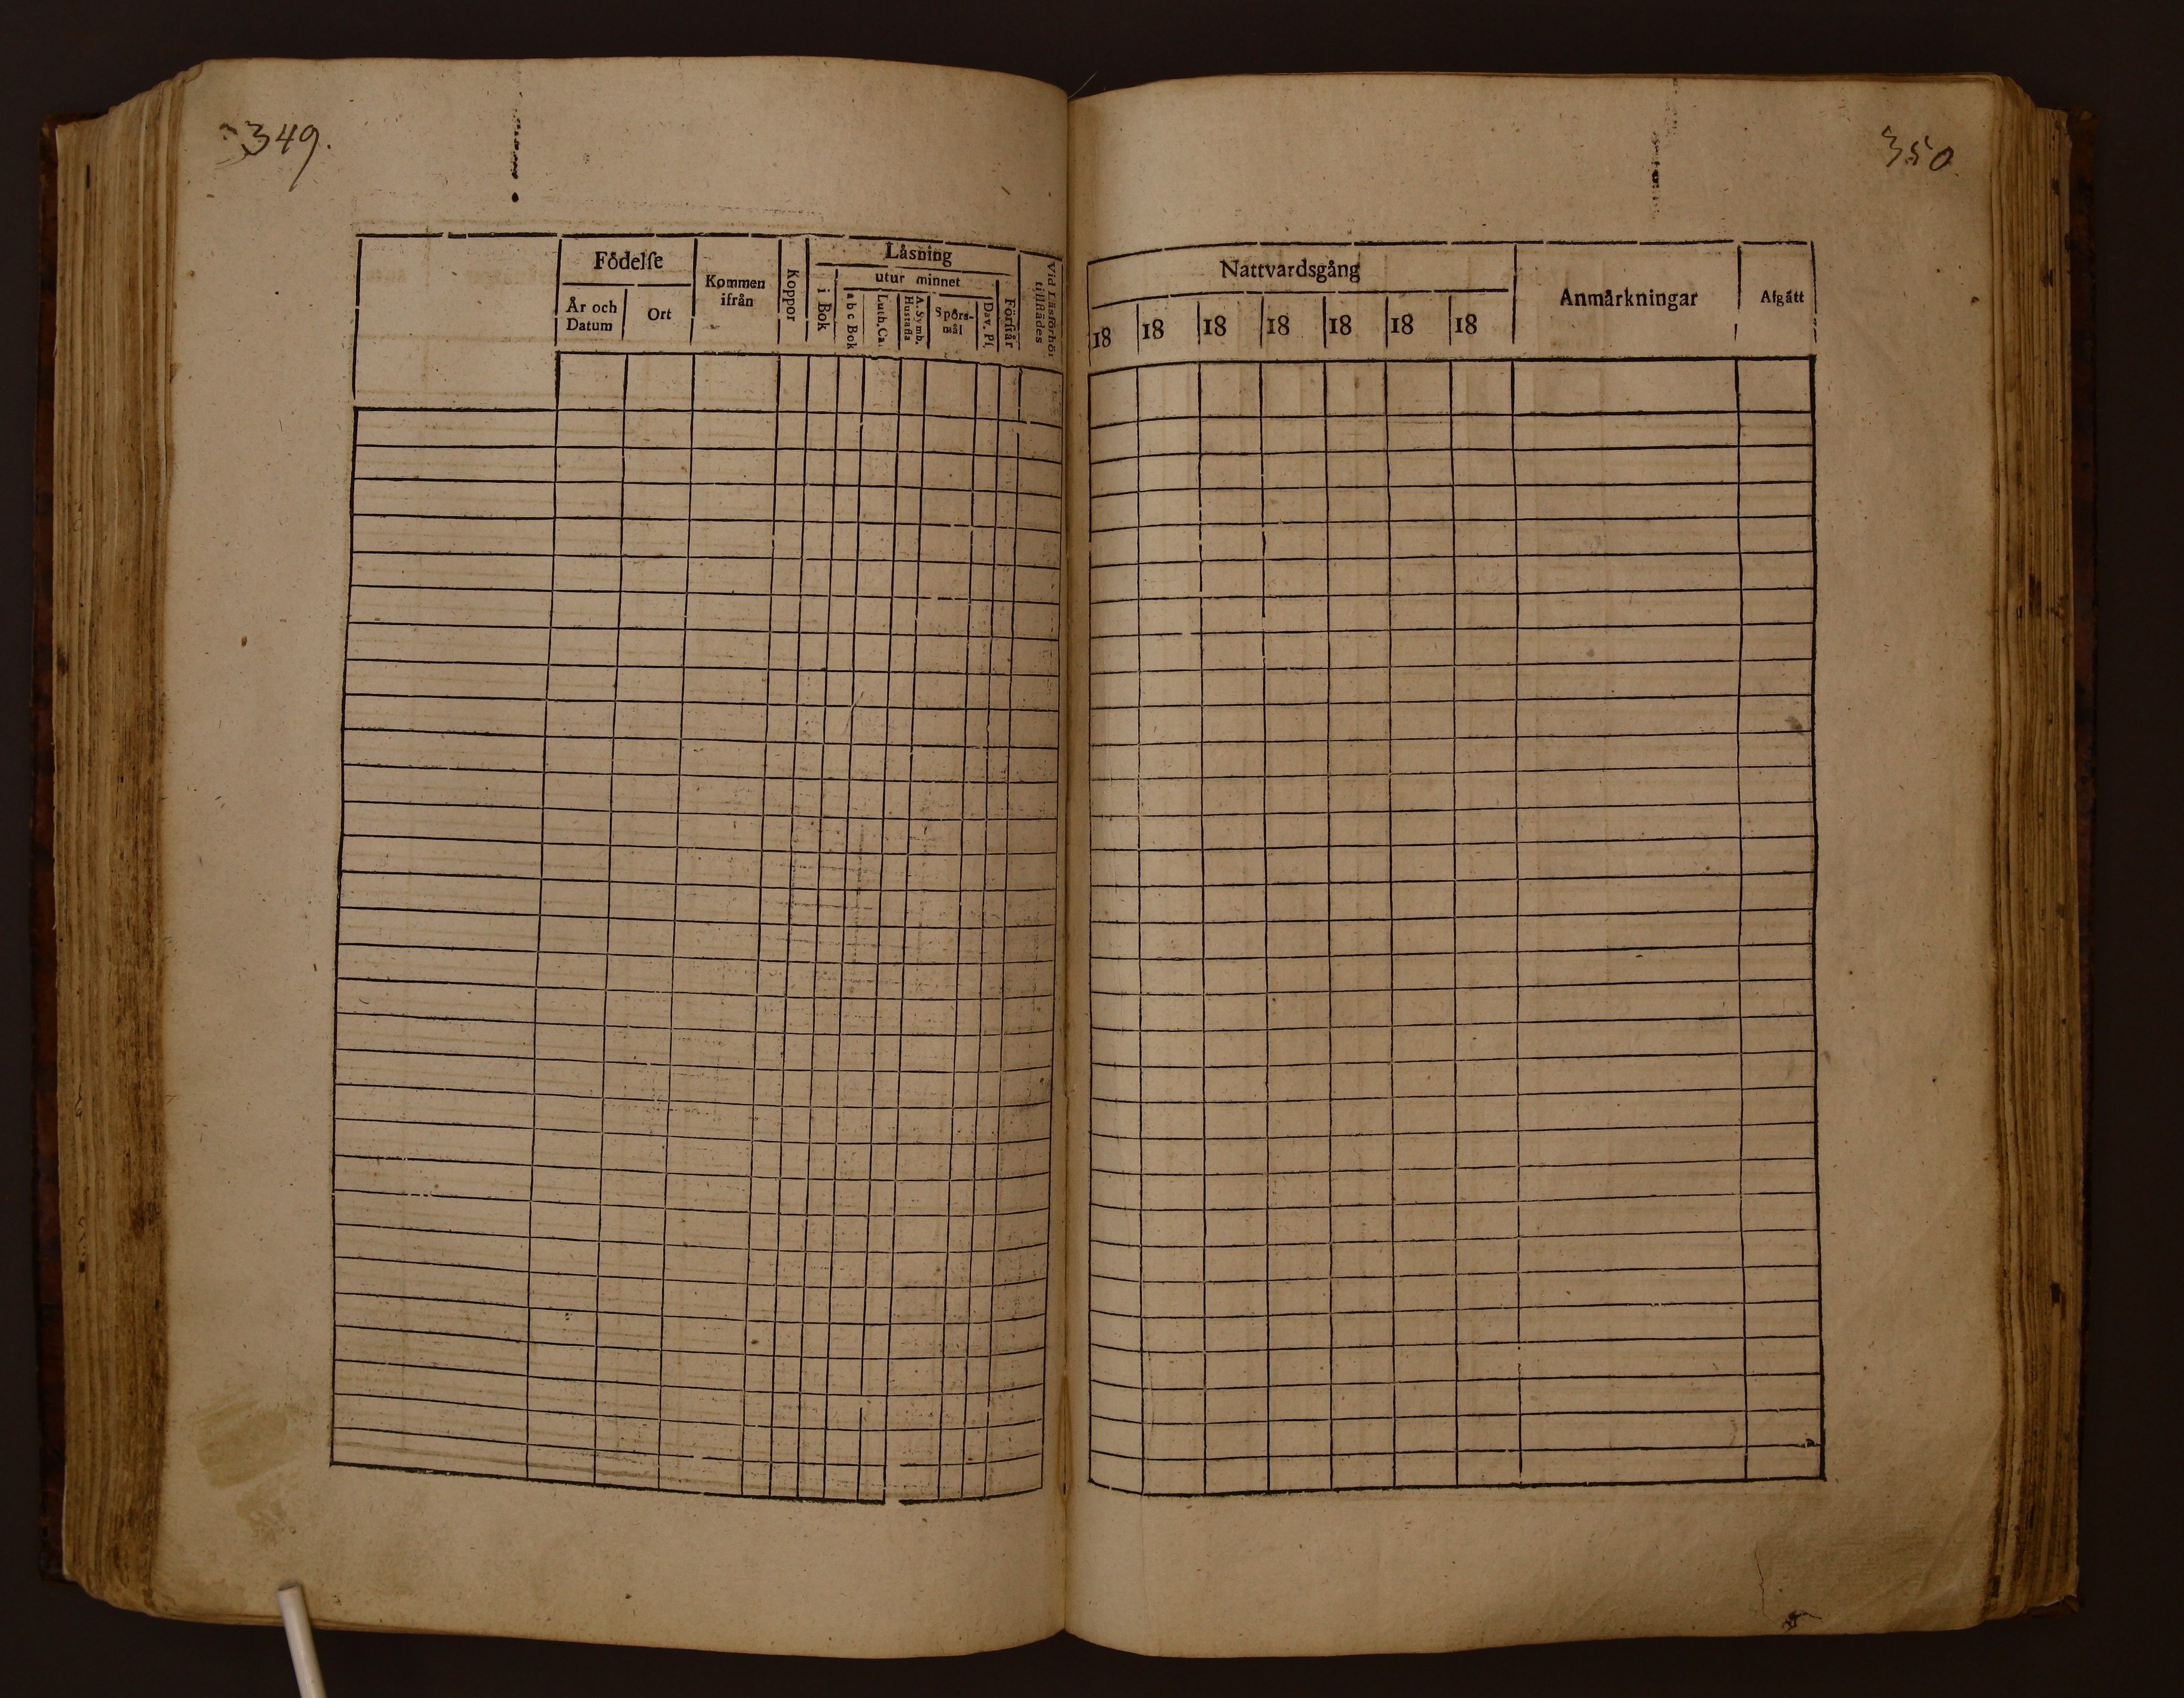 349.
Födelſe
År och
Datum
Ort
Kommen
ifrån
Koppor
Läsning
i Bok
utur minnet
a b c Bok
Luth. Ca.
A. Symb.
Hustafla
Spörs-
mål
Dav. Pſ.
Förſtår
Vid Läsförhör
tillſtädes
350.
Nattvardsgång
18 18 18 18 18 18 18
Anmärkningar
Afgått